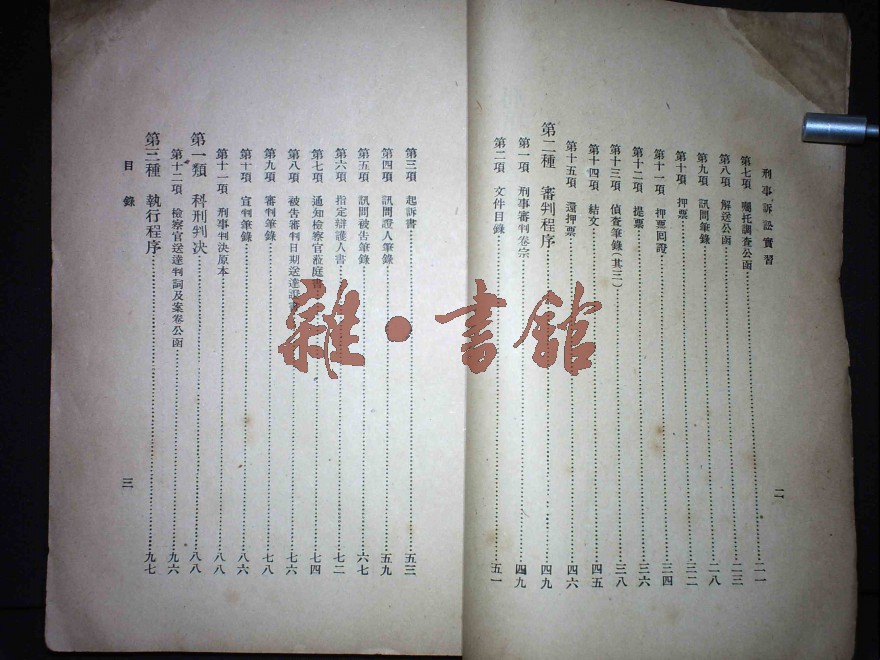 刑事訴訟實習
第七項　囑托調查公函……二一
第八項　解送公函……二三
第九項　訊問筆錄……二八
第十項　押票……三二
第十一項　押票回證……三四
第十二項　提票……三六
第十三項　偵查筆錄(其三)……三八
第十四項　結文……四五
第十五項　還押票……四六
第二種　審判程序……四九
第一項　刑事審判卷宗……四九
第二項　文件目錄……五一
二
第三項　起訴書……五三
第四項　訊問證人筆錄……五九
第五項　訊問被告筆錄……六七
第六項　指定辯護人書……七二
第七項　通知檢察官蒞庭書……七四
第八項　被告審判日期送達證書……七六
第九項　審判筆錄……七八
第十項　宣判筆錄……八六
第十一項　刑事判決原本……八八
第一類　科刑判决……八八
第十二項　檢察官送達判詞及案卷公函……九六
第三種　執行程序……九七
目錄
三
雜·書館